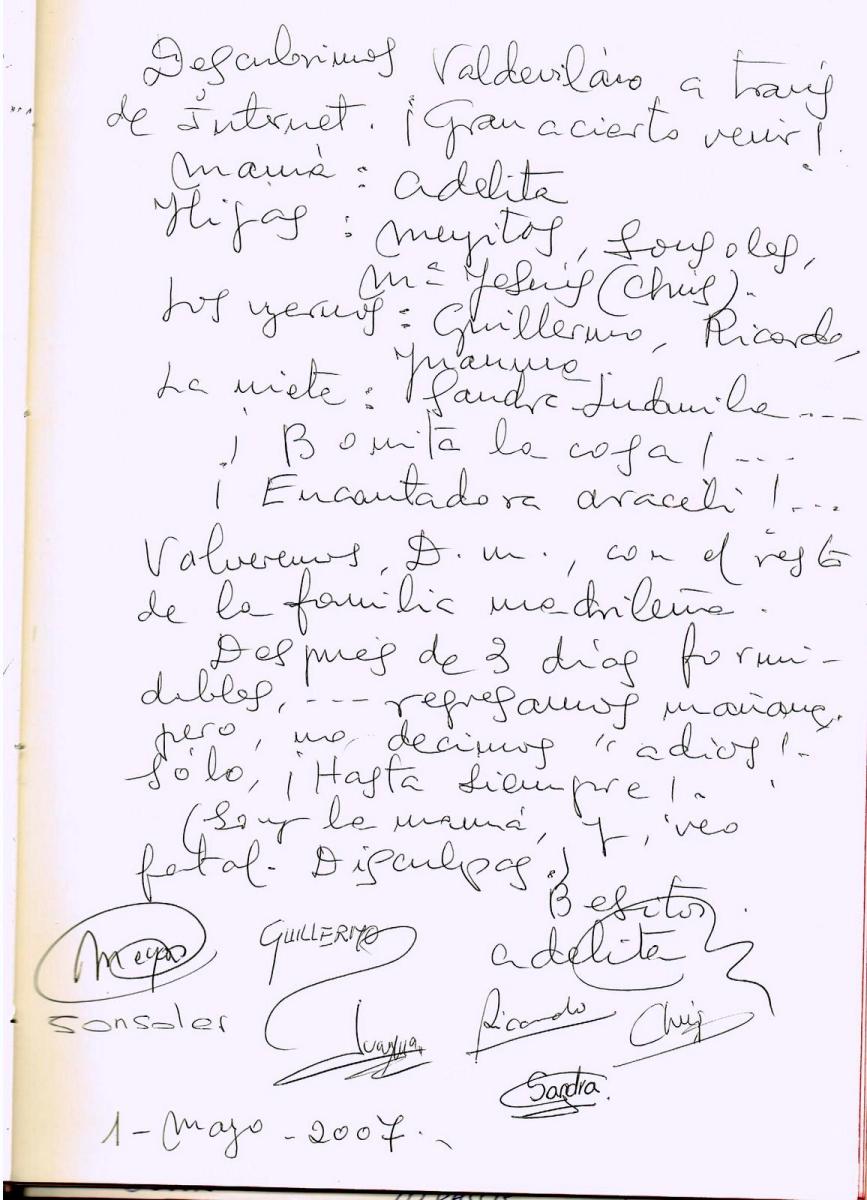 Descubrimos Valdevilano a través
de Internet. ¡Gran acierto venir!
Mamá: Adelita
Hijas: Meyitos, Sonsoles,
Mª Jesús (Chus).
Los yernos: Guillermo, Ricardo,
Juanma
La nieta: Sandra Ludmila ---
¡Bonita la cosa! ---
¡Encantadora Araceli!...
Volveremos, D. m., con el resto
de la familia madrileña.
Después de 3 días formi-
dables, --- regresamos mañana,
pero, no decimos "adios!-
Sólo, ¡Hasta siempre!.
(Soy la mamá, y, veo
fatal. Disculpas.)
Besitos.
Adelita
Meyos GUILLERMO
Sonsoles Juanma Ricardo Chus
Sandra.
1 - Mayo - 2007.